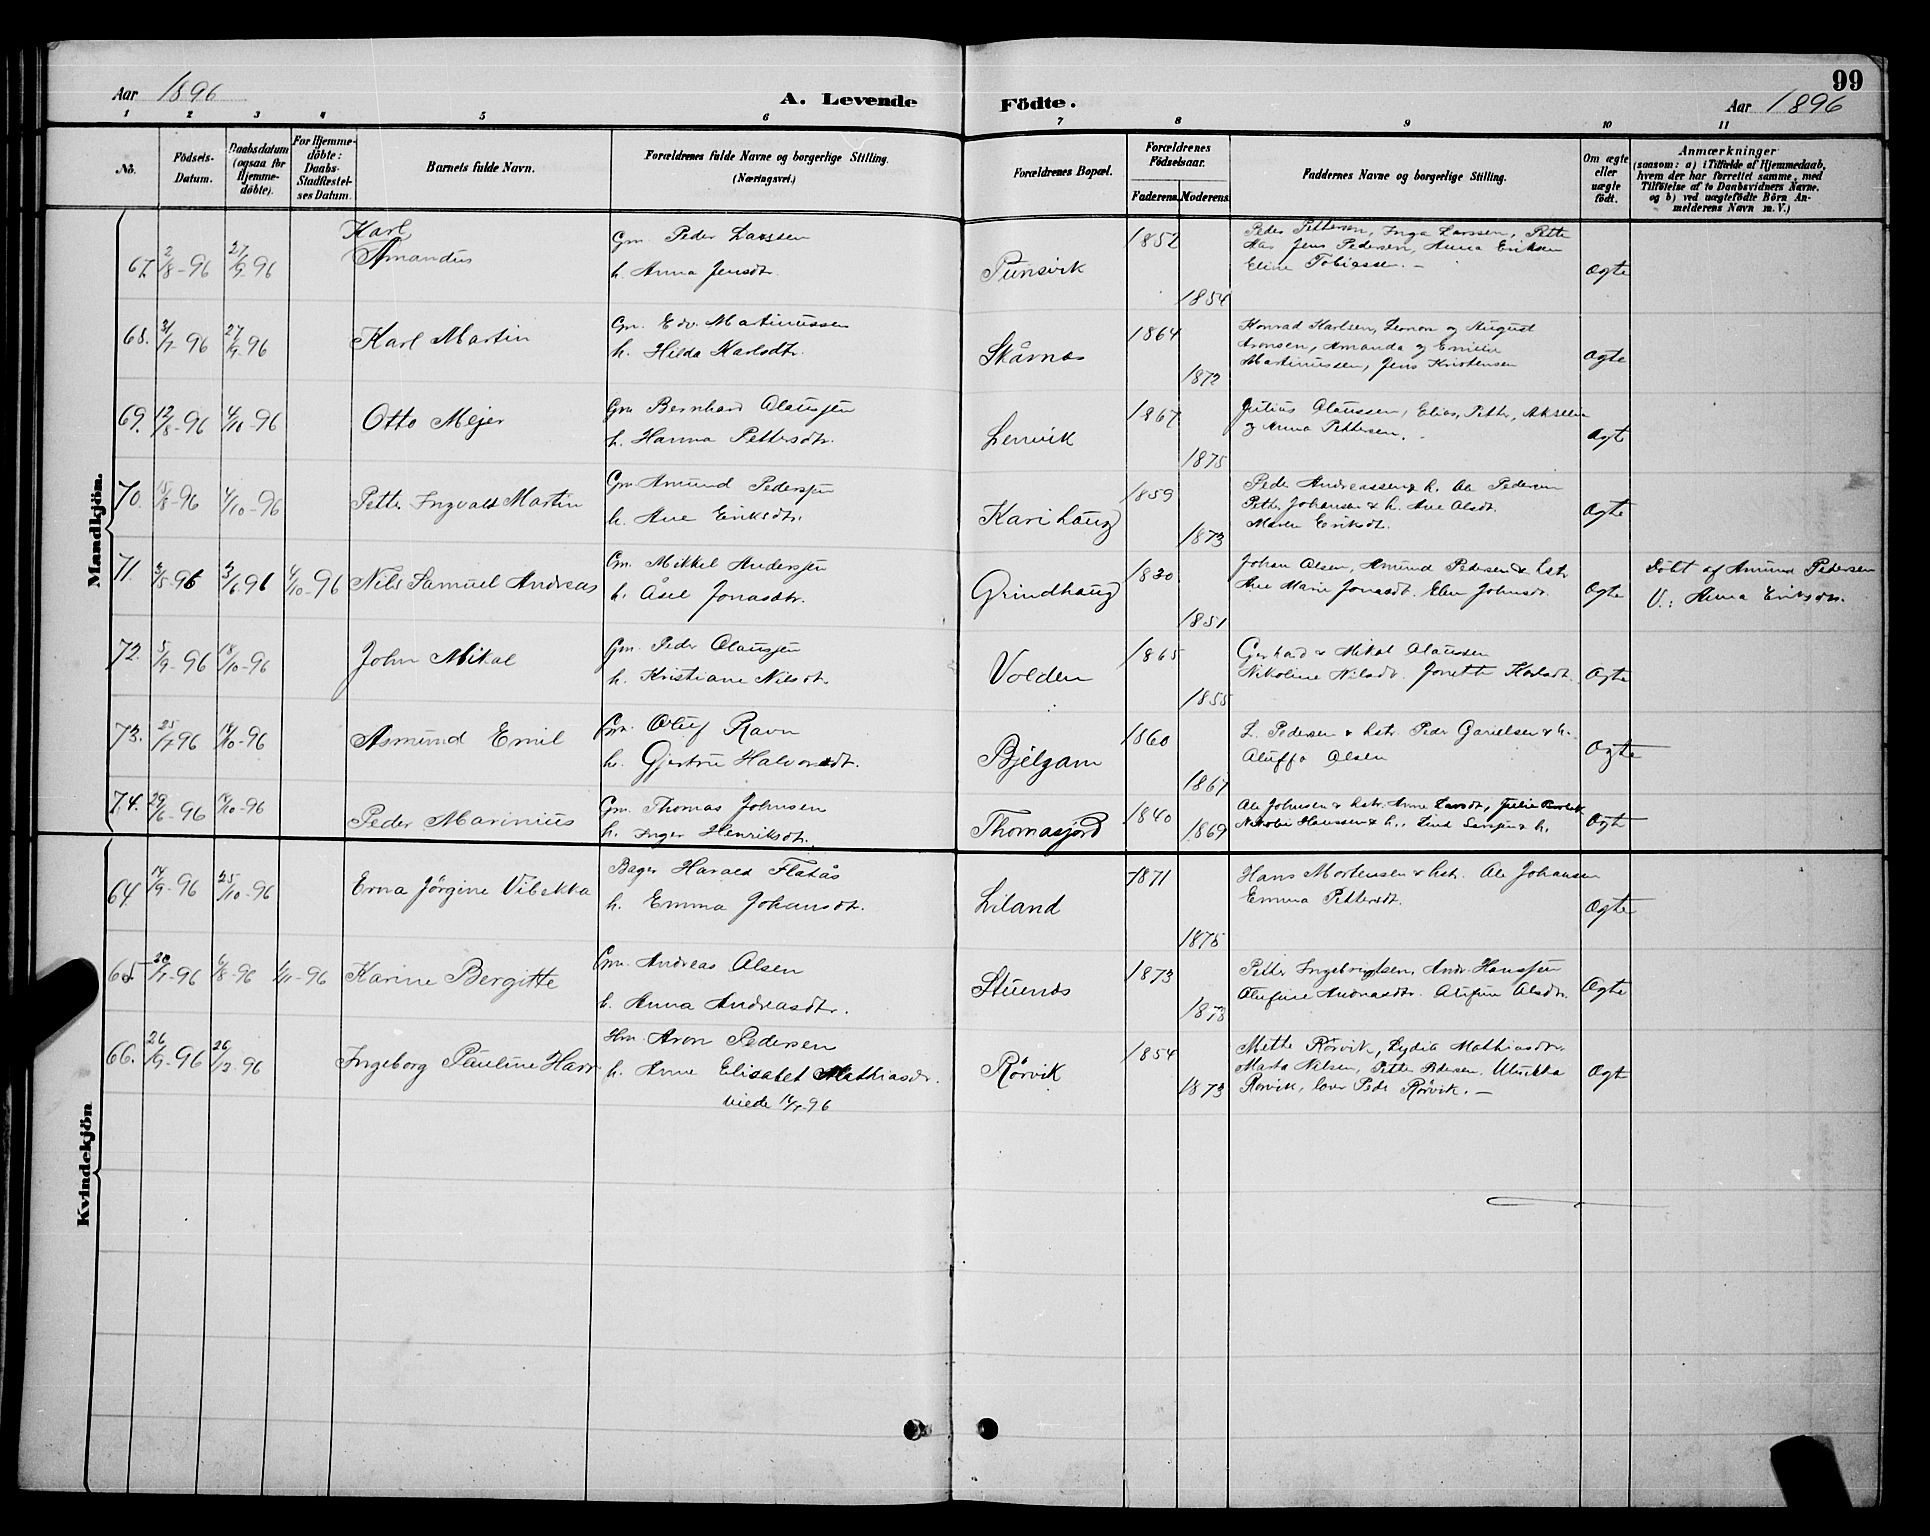 99
Aar 1896 A. Levende Födte. Aar 1896
1 2 3 4 5 6 7 8 9 10 11
No.
Födsels-Datum.
Daabsdatum (ogsaa for Hjemme-döbte).
For Hjemme-döbte: Daabs-Stadfæstel-ses Datum.
Barnets fulde Navn.
Forældrenes fulde Navne og borgerlige Stilling.
(Næringsvei.)
Forældrenes Bopæl.
Forældrenes Födselsaar.
Faderens. Moderens.
Faddernes Navne og borgerlige Stilling.
Om ægte eller uægte födt.
Anmærkninger
(saasom: a) i Tilfælde af Hjemmedaab,
hvem der har forrettet samme, med
Tilföielse af to Daabsvidners Navne.
og b) ved uægtefödte Börn An-
melderens Navn m.V.)
Mandkjön.
67. 2/8-96 27/9-96 Karl Amandus
Gm. Peder Larssen
h. Anna Jensdtr.
Punsvik 1852 1854
Peder Pettersen, Inga Larssen, Jens Pedersen, Anna Eriksen
Eline Tobiassen. Ægte
68. 31/7-96 27/9-96 Karl Martin
Gm. Edv. Martinussen
h. Hilda Karlsdtr.
Skårnes 1864 1872
Konrad Karlsen, og August
Aronsen, Amanda og Emilie
Martinussen, Jens Kristensen Ægte
69. 12/8-96 4/10-96 Otto Mejer
Gm Bernhard Olaussen
h. Hanna Pettersdtr.
Lenvik 1867 1875
Julius Olaussen, Elias, Petter,
og Anna Pettersen. Ægte
70. 15/8-96 4/10-96 Petter Ingvald Martin
Gm Amund Pedersen
h. Ane Eriksdtr.
Karihaug 1859 1873
Peder Andreassen & h. Ole Pedersen
Petter Johansen & h. Ane Olsdt.
Maren Eriksdt. Ægte
71. 3/5-96 4/10-96 Nils Samuel Andreas
Gm. Mikkel Anderssen
h. Åsel Jonasdtr.
Grindhaug 1830 1851
Johan Olsen, Amund Pedersen & hstr.
Ane Marie Jonasdt. Elen Johnsdt. Ægte
Döbt af Amund Pedersen
V.: Anna Eriksdtr.
72. 5/9-96 18/10-96 John Mikal
Gm. Peder Olaussen
h. Kristiane Nilsdt.
Volden 1865 1855
Gerhard & Mikal Olaussen
Nikoline Nilsdt. Jonette Karlsdt. Ægte
73. 25/7-96 18/10-96 Asmund Emil
Gm. Oluf Ravn
h. Gjertru Halvorsdt.
Bjelgam 1860 1867
L. Pedersen & hstr. Peder & h.
Oluffa Olsen Ægte
74. 29/6-96 18/10-96 Peder Marinius
Gm. Thomas Johnsen
h. Inger Henriksdt.
Thomasjord 1840 1869
Ole Johnsen & hstr. Anne Larsdt,
Hanssen & h. Ægt
Kvindekjön
64 14/9-96 25/10-96 Erna Jörgine Vibekka
Bager Harald Flatås
h. Emma Johansdt.
Liland 1871 1875
Hans Mortensen & hstr. Ole Johansen
Emma Pettersdt. Ægte
65 6/8-96 Karine Bergitte
Gm. Andreas Olsen
h. Anna Andreasdtr.
Stuenes 1873 1873
Petter Ingebrigtsen, Andr. Hanssen
Olufine Andreasdtr. Olufine Olsdtr. Ægte
66. 26/9-96 26/12-96 Ingeborg Pauline Harr
Hm. Aron Pedersen
h. Anne Elisabet Mathiasdr.
Viede 96
Rörvik 1854 1873
Mette Rörvik, Lydia Mathiasdtr.
Marta Nilsen, Petter Pedersen, Ulrikka
Rörvik, Peder Rörvik. Ægt